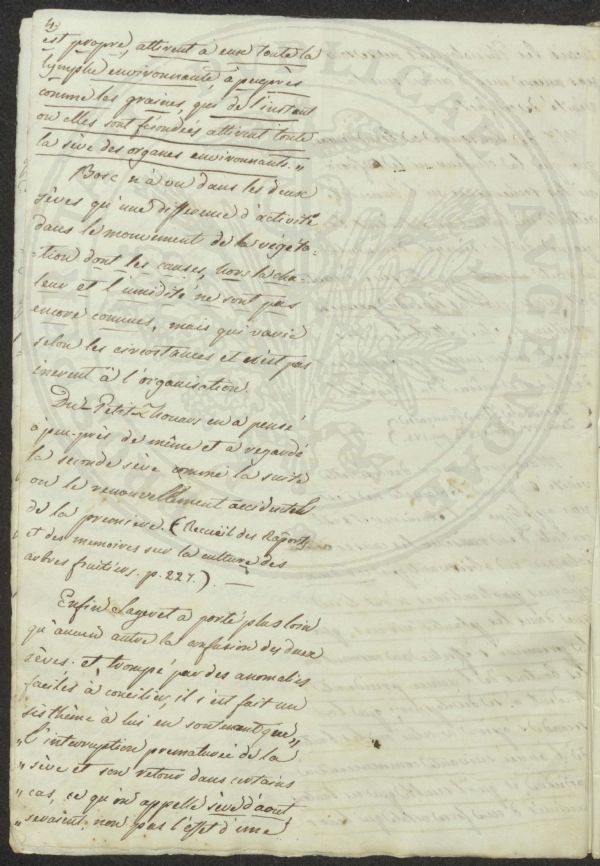 4
est propre, attirent à eux toute la
lymphe environnante, à peu près
comme les graines, qui de l'instant
ou elles sont fécondées attirent toute
la sève des organes environnants."
Bosc n'a vu dans les deux
sèves qu'une differrence d'activité
dans le mouvement de la végéta=
-tion dont les causes, hors la cha
leur et l'umidité ne sont pas
encore connues, mais qui varie
selon les circostances et n'est pas
inerent à l'organisation.
Du Petit Thouars en a pensé
à peu-près de même et a regardé
la seconde sève comme la suite
ou le renouvellement accidentel
de la premiere. (Recueil des Raports
et des memoires sur la culture des
arbres fruitiers. p. 227.). —
Enfin Sageret a porté plus loin
qu'aucun autre la confusion des deux
sèves. et, trompé par des anomalies
faciles à concilier, il s'est fait un
sisthème à lui en soutenant que "
" l'interruption prematurée de la
" sève et son retour dans certains
" cas, ce qu'on appelle sève d'aout
" seraient, non pas l'effet d'une
REPUBLICAE AVGENDAE